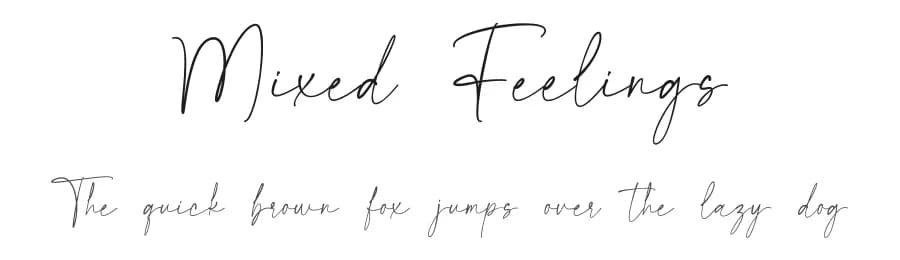 Mixed Feelings
The quick brown fox jumps over the lazy dog